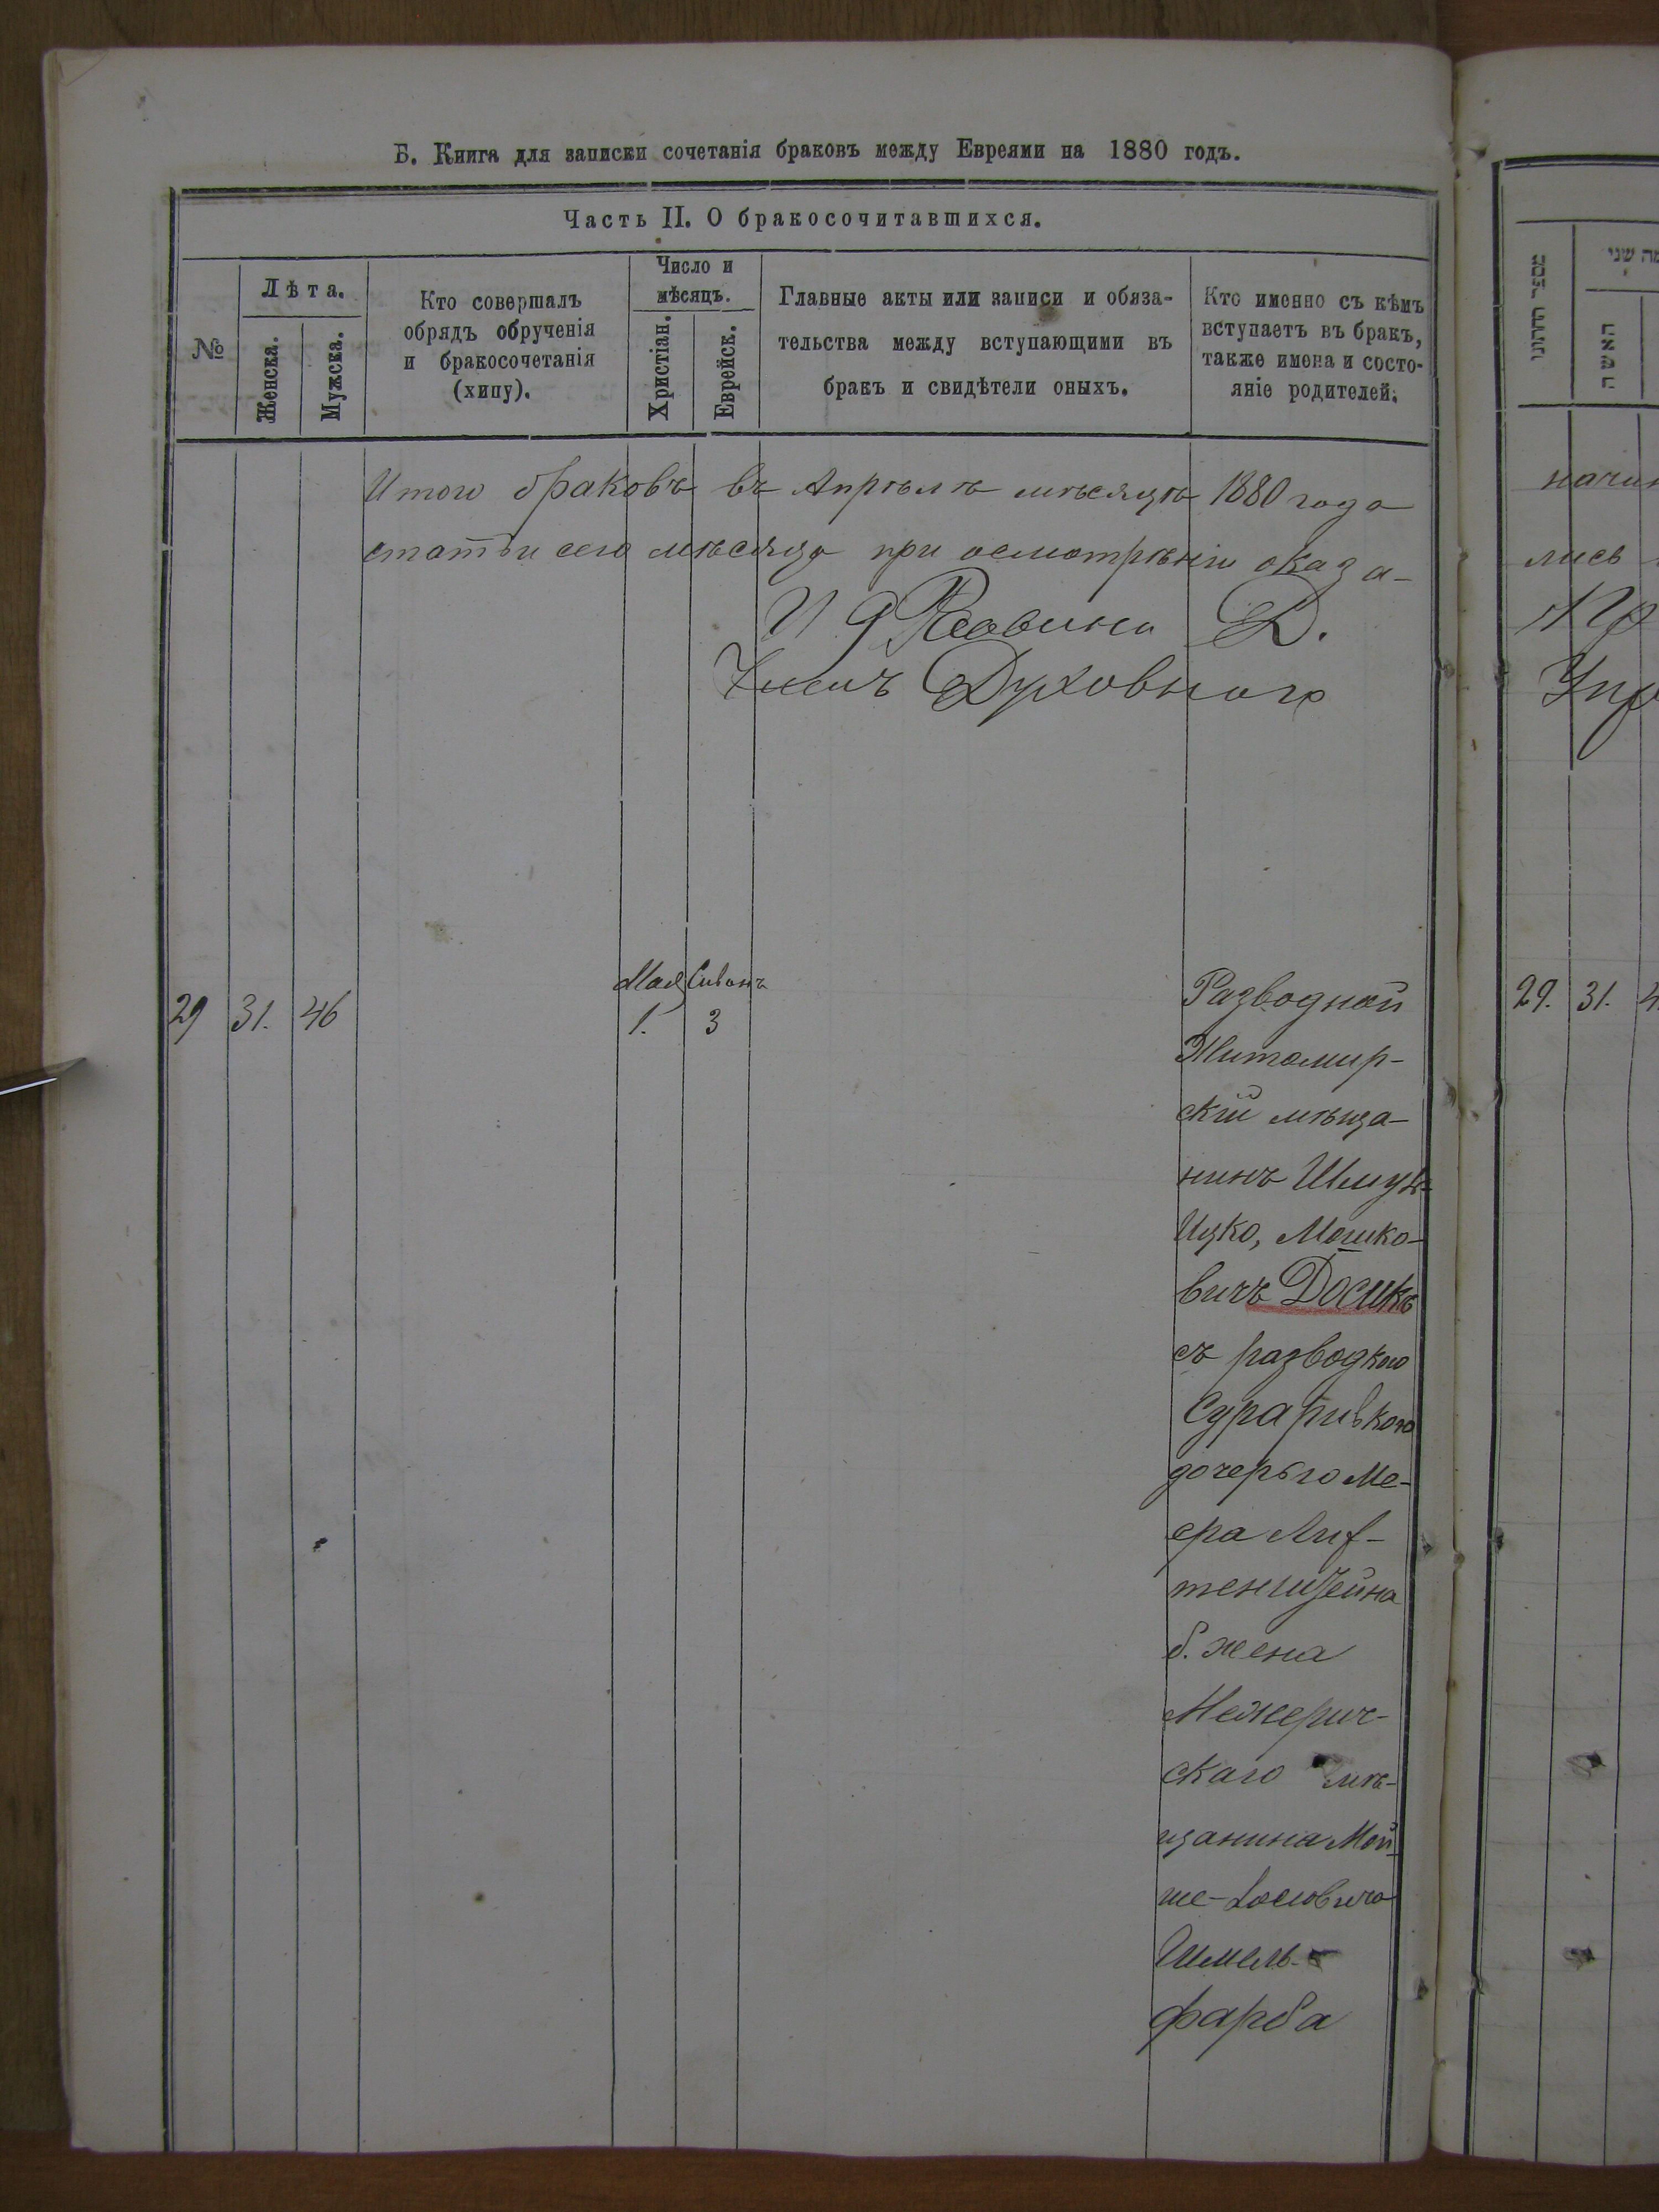 Б. Книга для записки сочетанія браковъ между Евреями на 1880 годъ.
Часть II. О бракосочитавшихся.
№
Лѣта.
Женска.
Мужска.
Кто совершалъ
обрядъ обрученія
и бракосочетанія
(хипу).
Число и
мѣсяцъ.
Христіан.
Еврейск.
Главные акты или записи и обяза-
тельства между вступающими въ
бракъ и свидѣтели оныхъ.
Кто именно съ кѣмъ
вступаетъ въ бракъ,
также имена и состо-
яніе родителей.
Итого браковъ въ Апрѣлѣ мѣсяцѣ 1880 года
статьи сего мѣсяца при осмотрѣніи оказа-
И Д Раввина Д.
Членъ Духовного
29 31. 46
Мая Сивонъ
1. 3
Разводной
Житомир-
скій мѣща-
нинъ Шмуль
Ицко, Мошко-
вичъ Досикъ
съ разводкою
Сура Ривкою
дочерью Ме-
ера Лиф-
тенштейна
б. жена
Межерич-
скаго мѣ-
щанина Мой
ше-Іосіовича
Шмель-
фарба
מספר החתונו
האשה
начин
лись
Упр
29. 31. 4